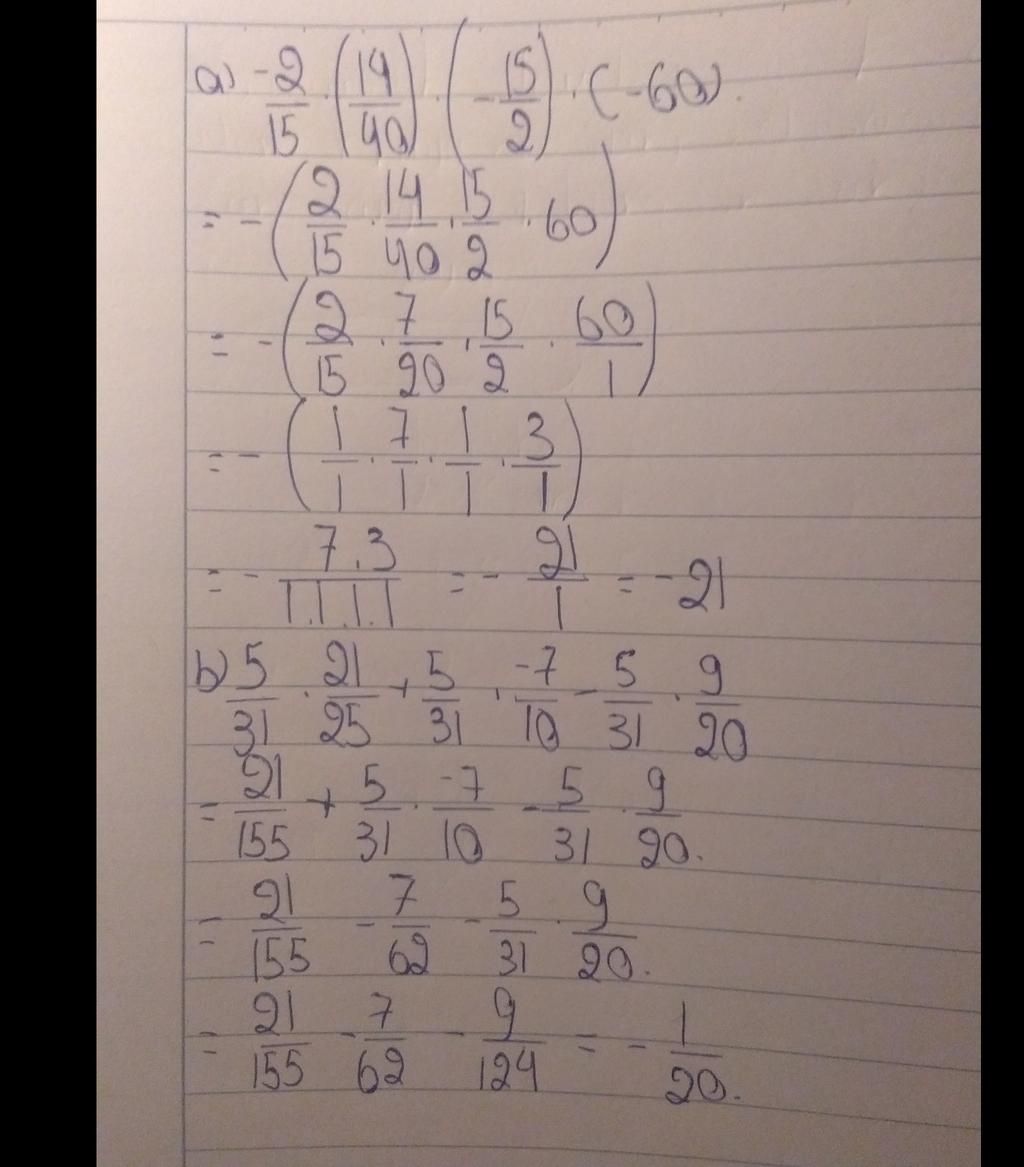 a) -2/15 . (14/40) . (-15/2) . (-60).
= -(2/15 . 14/40 . 15/2 . 60)
= -(2/15 . 7/20 . 15/2 . 60/1)
= -(1/1 . 7/1 . 1/1 . 3/1)
= - 7.3/1.1.1.1 = - 21/1 = -21
b) 5/31 . 21/25 + 5/31 . -7/10 - 5/31 . 9/20
= 21/155 + 5/31 . -7/10 - 5/31 . 9/20.
= 21/155 - 7/62 - 5/31 . 9/20.
= 21/155 - 7/62 - 9/124 = - 1/20.